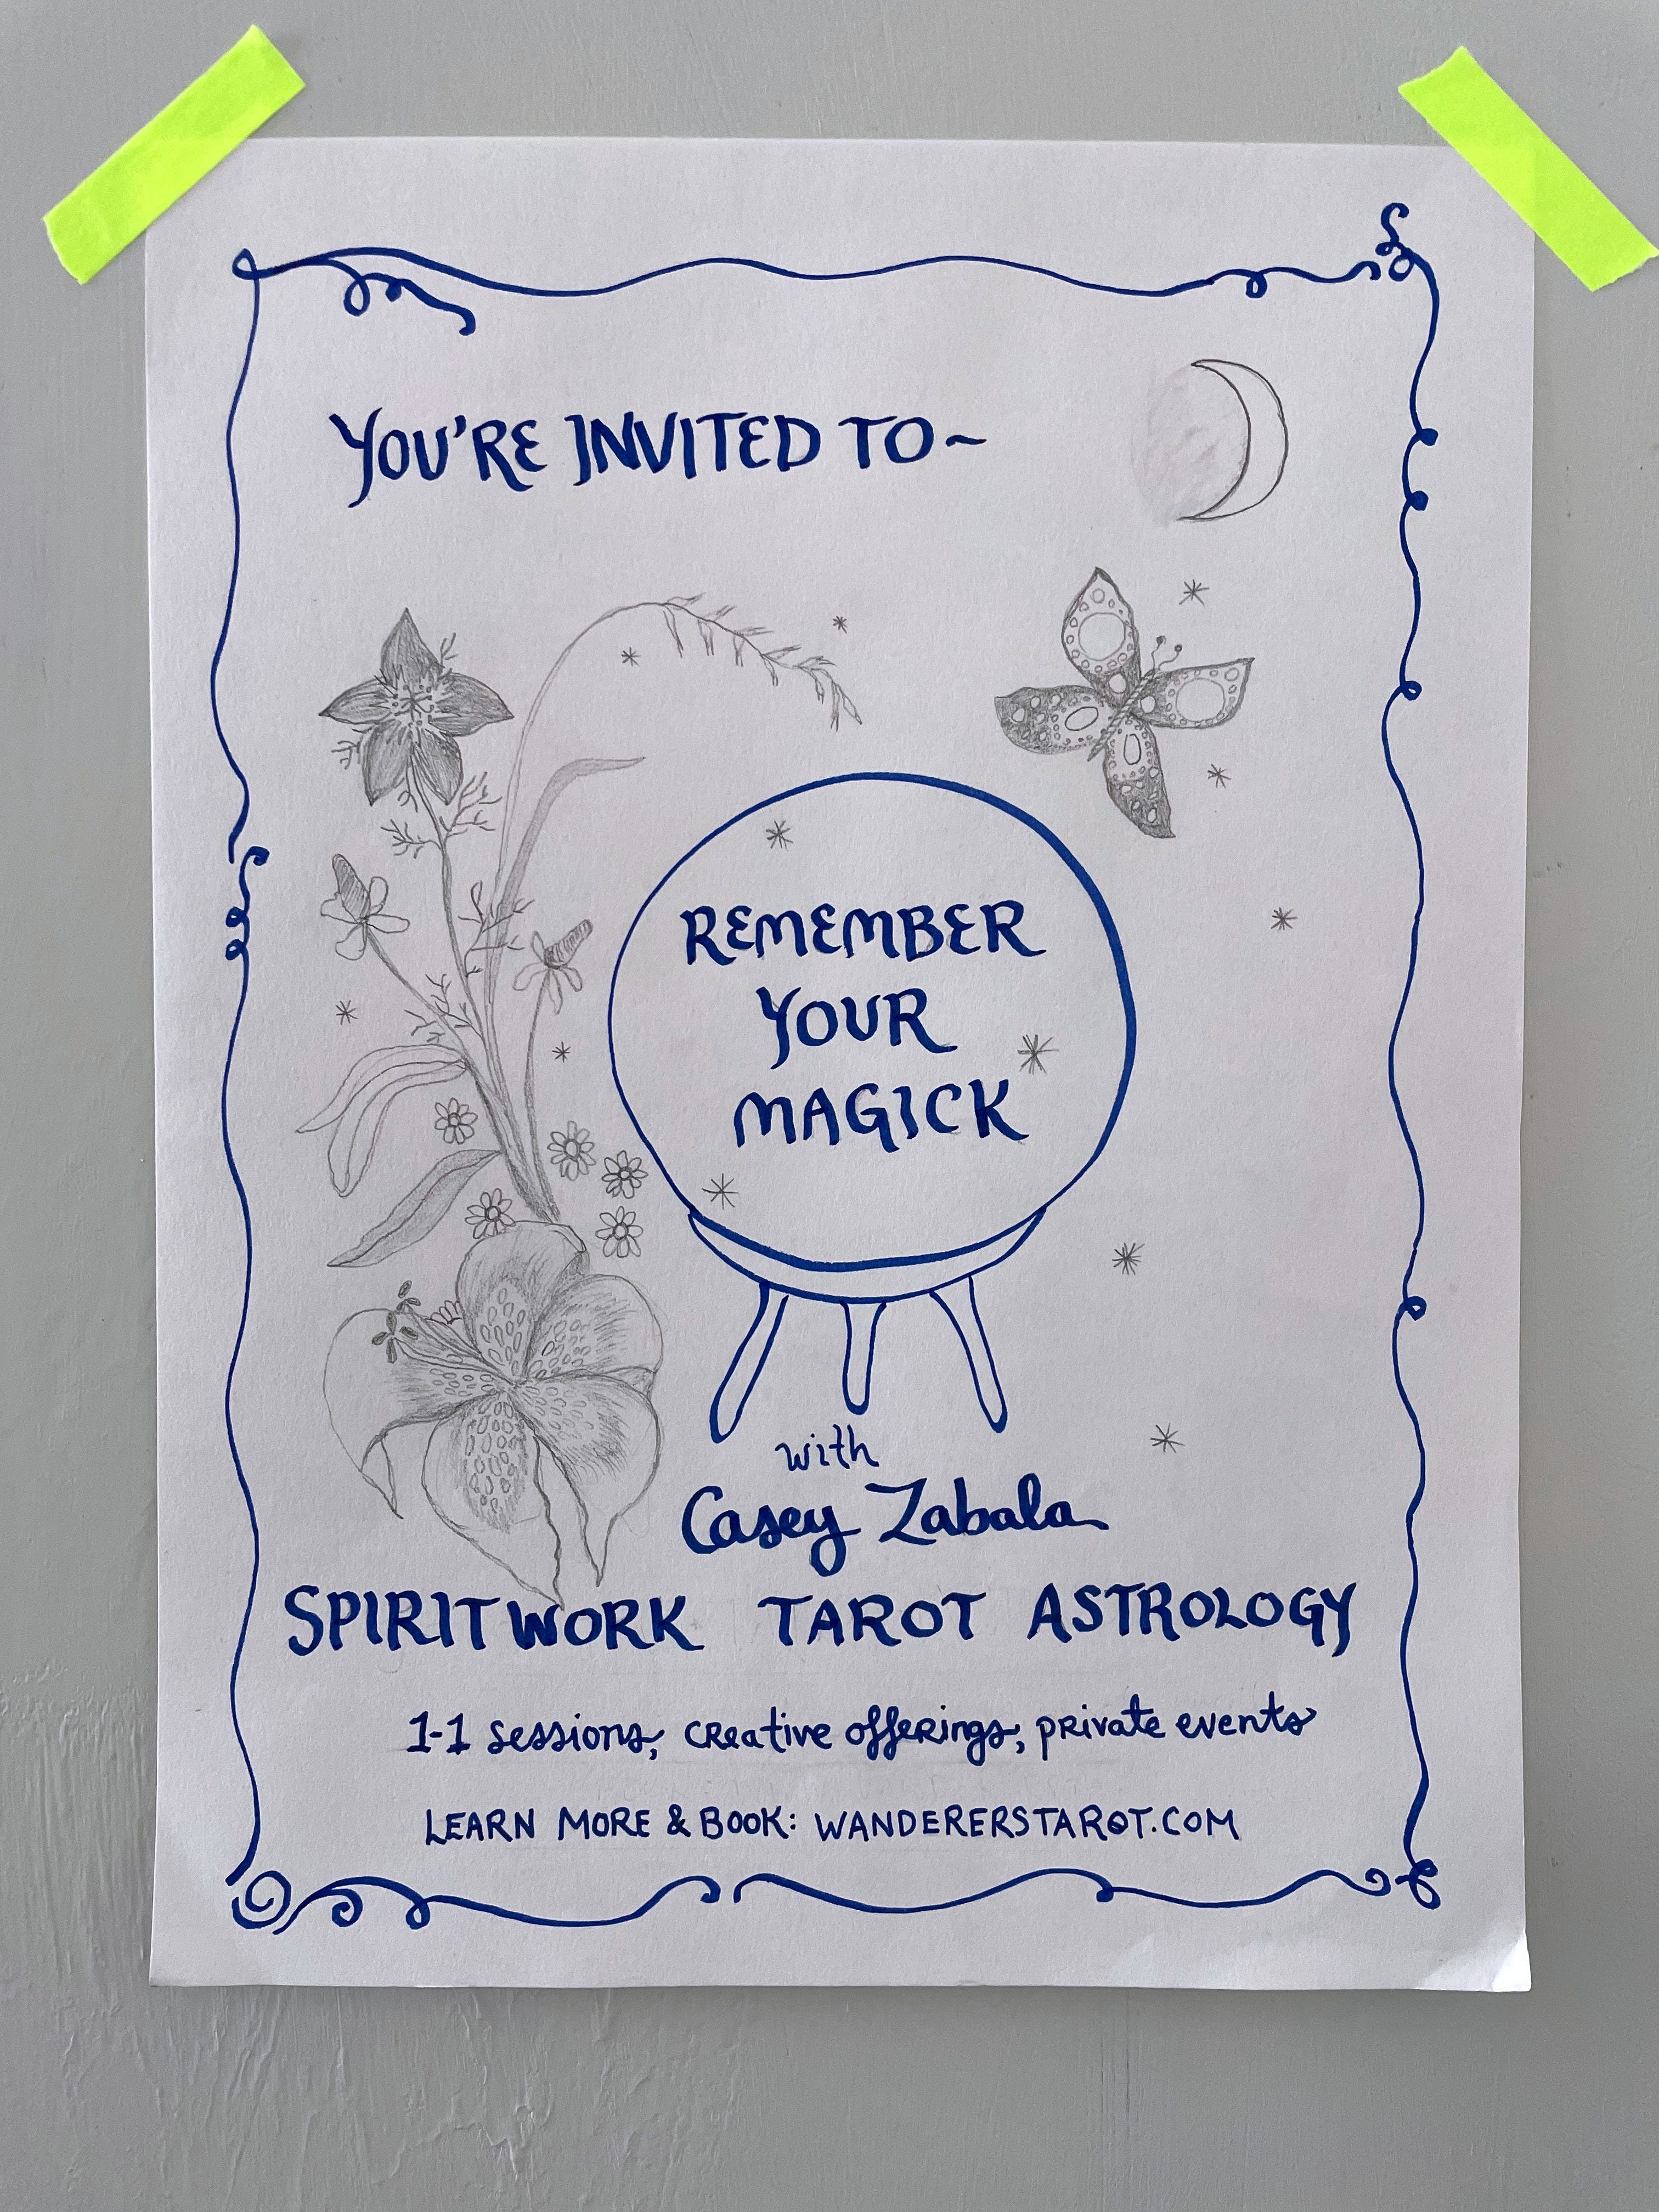 YOU'RE INVITED TO~
REMEMBER
YOUR
MAGICK
with
Casey Zabala
SPIRITWORK TAROT ASTROLOGY
1-1 sessions, creative offerings, private events
LEARN MORE & BOOK: WANDERERSTAROT.COM